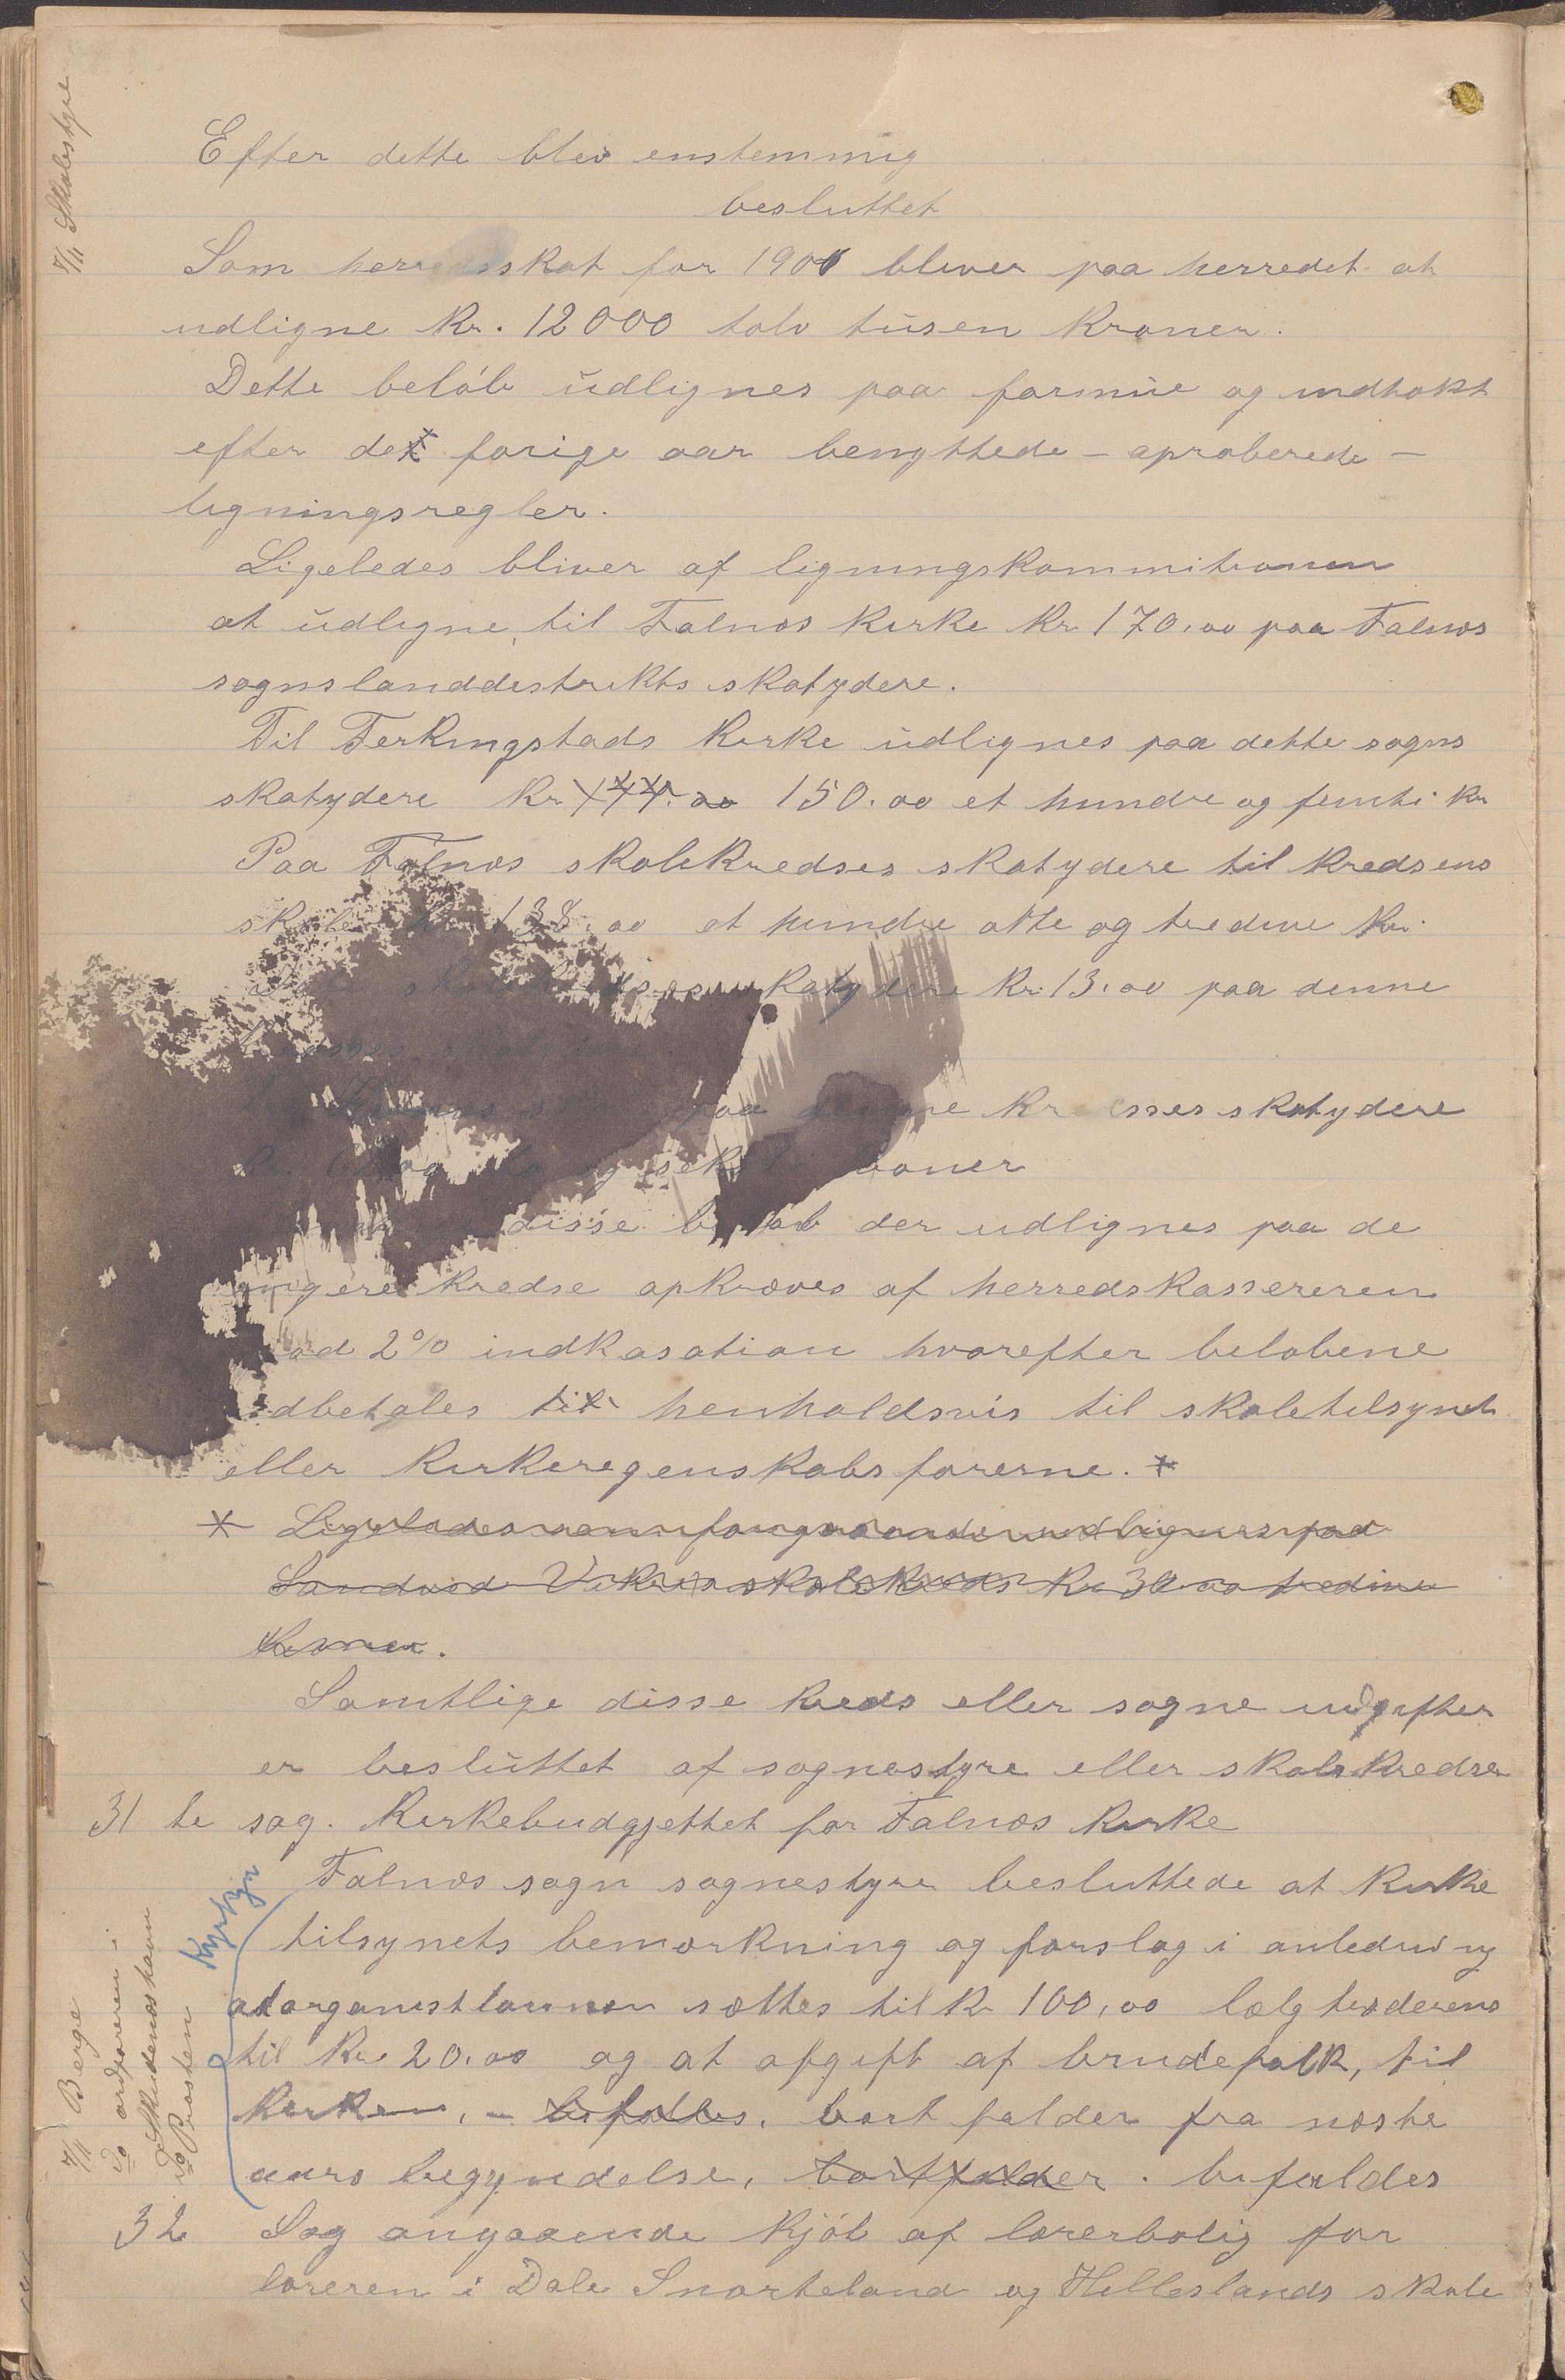 7/11 Skolestyre
Efter dette blev enstemmig
besluttet
Som herredsskat for 1900 bliver paa herredet at
udligne Kr. 12000 tolv tusen Kroner.
Dette beløb udlignes paa formue og indtækt
efter det forige aar benyttede - aproberede -
ligningsregler.
Ligeledes bliver af ligningskommitionen
at udligne, til Falnæs Kirke Kr 170.00 paa Falnæs
sognslanddestrikts skatydere.
Til Ferkingstads Kirke udlignes paa dette sogns
skatydere Kr 144.00 150.00 et hundre og femti Kr
Paa Falnæs skolekredses skatydere til kredsens
skole Kr 138.00 et hundre otte og tredive Kr.
skatydere Kr. 13.00 paa denne
paa denne Kredsses skatydere
og seksti Kroner
disse beløb der udlignes paa de
Kredse opkræves af herredskassereren
mod 2% indkasation hvorefter beløbene
udbetales til henholdsvis til skoletilsynet
eller Kirkeregenskabsførerne. *
* Ligeledes udlignes paa
Sandved Vikres skolekreds Kr 30.00 tredive
Kroner.
Samtlige disse kreds eller sogne udgifter
er besluttet af sognestyre eller skolekredse
31 te sag. Kirkebudgjettet for Falnæs Kirke
Falnæs sogn sognestyre besluttede at Kirke
tilsynets bemærkning og forslag i anledning
at organistlønnen sættes til Kr 100,00 bælgtræderens
til Kr 20.00 og at afgift af brudefolk, til
Kirken, - bifaldes, bort falder fra næste
aars begyndelse, bortfalder. bifaldes
Kyrkja
7/11 Berge
do ordføreren i
Skudeneshavn
do Prosten
32 Sag angaaende Kjøb af lærerbolig for
læreren i Dale Snorteland og Hilleslands skole